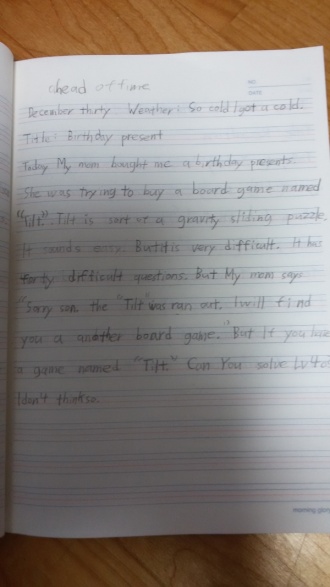 ahead of time
NO.
DATE
December thirty Weather: So cold I got a cold.
Title: Birthday present
Today My mom bought me a birthday presents.
She was trying to buy a board game named
"Tilt". Tilt is sort of a gravity sliding puzzle.
It sounds easy. But it is very difficult. It has
forty difficult questions. But My mom say
"Sorry son, the "Tilt" was ran out. I will find
you a another board game." But If you have
a game named "Tilt." Can You solve Lv 40?
I don't think so.
morning glory